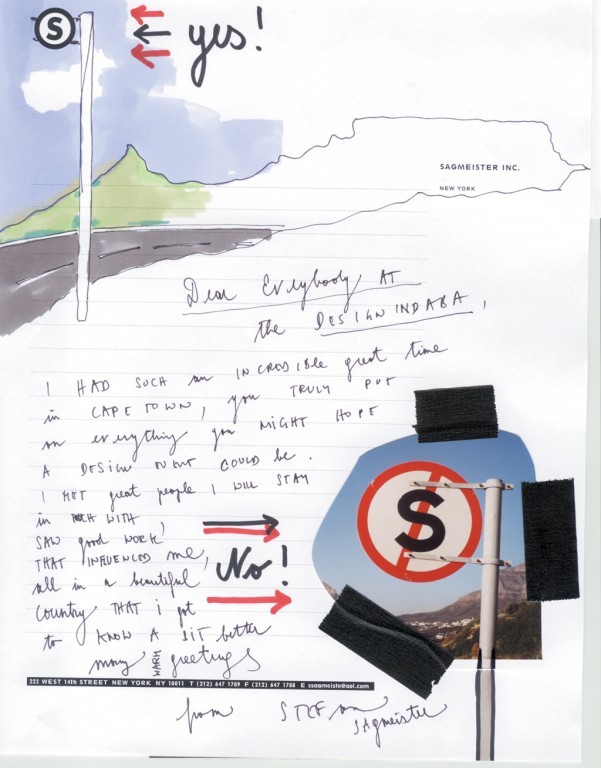 S
yes!
SAGMEISTER INC.
NEW YORK
Dear Everybody AT
the DESIGN INDABA,
I HAD SUCH an INCREDIBLE great time
in CAPE TOWN, you TRULY PUT
on everything you MIGHT HOPE
A DESIGN EVENT COULD be.
I MET great people I WILL STAY
in WITH,
SAW good WORK
THAT INFLUENCED me,
all in a beautiful
country THAT i got
to KNOW A BIT better
many WARM greetings
No!
S
222 WEST 14th STREET NEW YORK NY 10011 T (212) 647 1789 F (212) 647 1788 E ssagmeiste@aol.com
from STEFan
SAgmeister